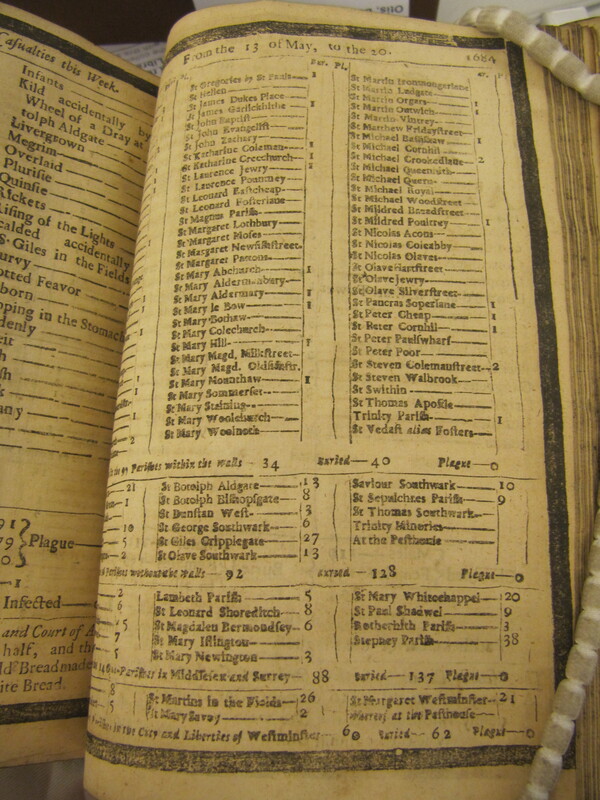 Casualties this Week.
Infants
Kild accidentally by
Wheel of a Dray at
tolph Aldgate
Livergrown
Megrim
Overlaid
Plurisie
Quinsie
Rickets
Rising of the Lights
calded accidentally
S. Giles in the Fields
urvy
otted Feavor
born
pping in the Stomach
denly
Plague
Infected
and Court of A
half, and th
ld Bread made
ite Bread.
From the 13 of May, to the 20. 1684
Bur. Pl.
St Gregories by St Pauls 1
St Hellen
St James Dukes Place
St James Garlickhithe 1
St John Baptist
St John Evangelist
St John Zachery
St Katharine Coleman 1
St Katharine Creechurch 1
St Laurence Jewry 2
St Laurence Pountney
St Leonard Eastcheap
St Leonard Fosterlane
St Magnus Parish
St Margaret Lothbury
St Margaret Moses
St Margaret Newfishstreet
St Margaret Pattons
St Mary Abchurch 1
St Mary Aldermanbury
St Mary Aldermary 1
St Mary le Bow 1
St Mary Bothaw
St Mary Colechurch
St Mary Hill 1
St Mary Magd. Milkstreet
St Mary Magd. Oldfishstr.
St Mary Mounthaw 1
St Mary Sommerset
St Mary Staining
St Mary Woolchurch
St Mary Woolnoth
St Martin Ironmongerlane
St Martin Ludgate
St Martin Orgers 1
St Martin Outwich 1
St Martin Vintrey
St Matthew Fridaystreet
St Michael Bassishaw 1
St Michael Cornhil
St Michael Crookedlane 2
St Michael Queenhith
St Michael Quern
St Michael Royal
St Michael Woodstreet
St Mildred Breadstreet
St Mildred Poultrey 1
St Nicolas Acons
St Nicolas Coleabby
St Nicolas Olaves
St Olave Hartstreet
St Olave Jewry
St Olave Silverstreet
St Pancras Soperlane 1
St Peter Cheap 1
St Peter Cornhil 1
St Peter Paulswharf
St Peter Poor
St Steven Colemanstreet 2
St Steven Walbrook
St Swithin
St Thomas Apostle
Trinity Parish 1
St Vedast alias Fosters
97 Parishes within the walls - 34 Buried - 40 Plague - 0
St Botolph Aldgate 13
St Botolph Bishopsgate 8
St Dunstan West 3
St George Southwark 6
St Giles Cripplegate 27
St Olave Southwark 13
Saviour Southwark 10
St Sepulchres Parish 9
St Thomas Southwark
Trinity Minories
At the Pesthouse
Parishes without the walls - 92 Buried - 128 Plague - 0
Lambeth Parish 5
St Leonard Shoreditch 8
St Magdalen Bermondsey 6
St Mary Islington
St Mary Newington 3
St Mary Whitechappel 20
St Paul Shadwel 9
Rotherhith Parish 3
Stepney Parish 38
Parishes in Middlesex and Surrey - 88 Buried - 137 Plague - 0
St Martins in the Fields 26
St Mary Savoy 2
St Margaret Westminster 21
Whereof at the Pesthouse
Parishes in the City and Liberties of Westminster 60 Buried - 62 Plague - 0